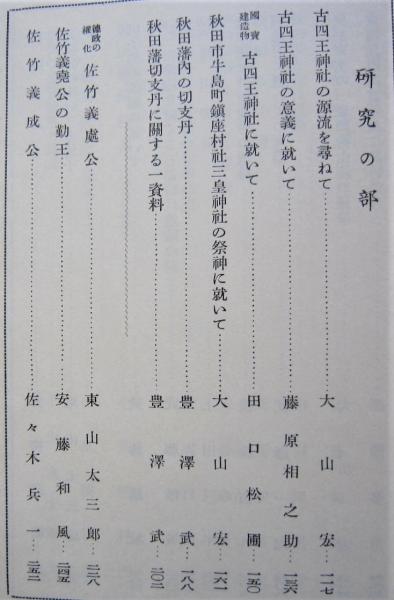 研究の部
古四王神社の源流を尋ねて……大山宏…一一七
古四王神社の意義に就いて……藤原相之助…一三六
國寶建造物 古四王神社に就いて……田口松圃…一五〇
秋田市牛島町鎭座村社三皇神社の祭神に就いて……大山宏…一六一
秋田藩内の切支丹……豊澤武…一八八
秋田藩切支丹に關する一資料……豊澤武…二〇二
德政の權化 佐竹義處公……東山太三郎…二二八
佐竹義堯公の勤王……安藤和風…二四五
佐竹義成公……佐々木兵一…二五二